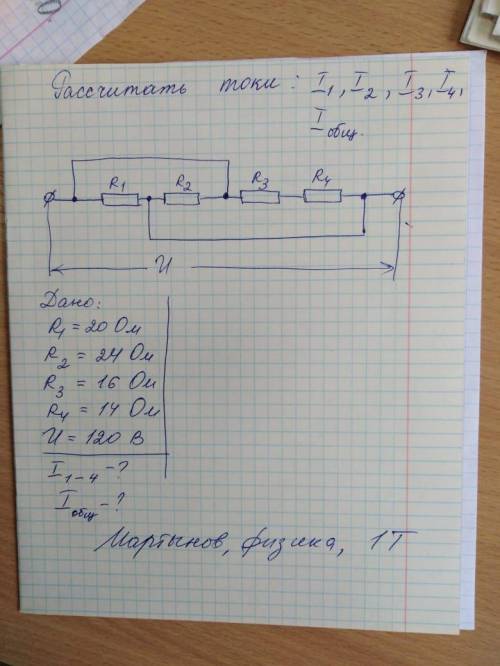 Рассчитать токи: I₁, I₂, I₃, I₄,
I общ.
R₁ R₂ R₃ R₄
U
Дано:
R₁ = 20 Ом
R₂ = 24 Ом
R₃ = 16 Ом
R₄ = 14 Ом
U = 120 В
I₁₋₄ - ?
I общ - ?
Мартынов, физика, 1Т